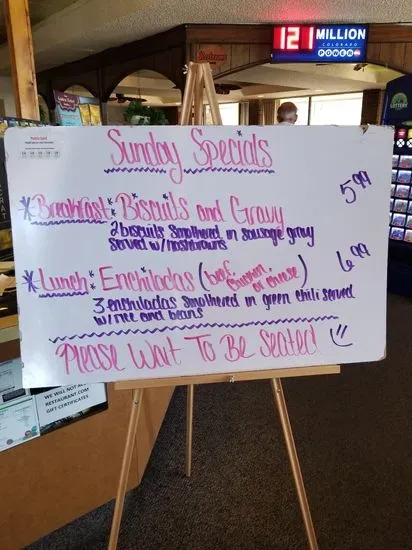 121 MILLION
COLORADO
POWER
Sunday Specials
*Breakfast: Biscuits and Gravy 5.99
2 biscuits smothered in sausage gravy
served w/ hashbrowns
*Lunch: Enchiladas (beef, chicken or cheese) 6.99
3 enchiladas smothered in green chili served
w/ rice and beans
Please Wait To Be Seated!
WE WILL NOT
RESTAURANT.COM
GIFT CERTIFICATES